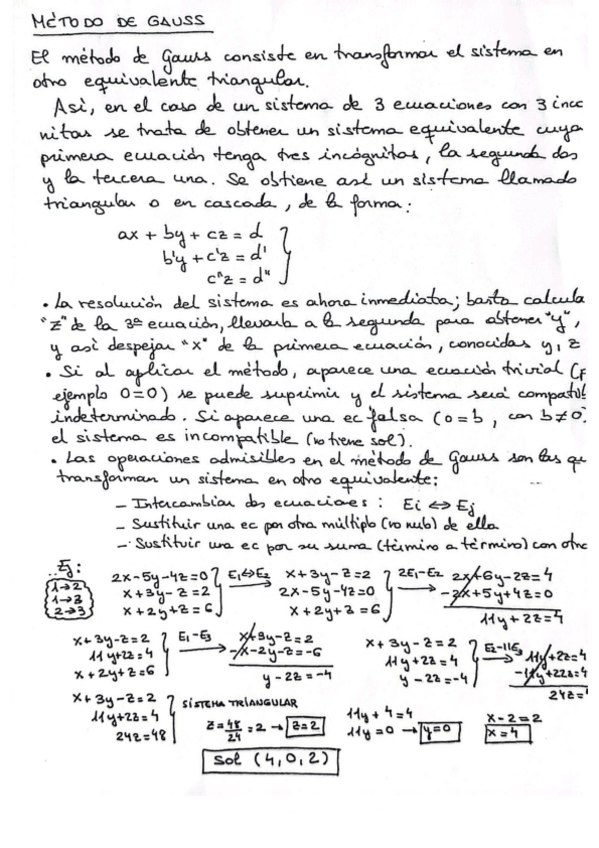 MÉTODO DE GAUSS
El método de Gauss consiste en transformar el sistema en
otro equivalente triangular.
Así, en el caso de un sistema de 3 ecuaciones con 3 incó
nitas se trata de obtener un sistema equivalente cuya
primera ecuación tenga tres incógnitas, la segunda dos
y la tercera una. Se obtiene así un sistema llamado
triangular o en cascada, de la forma:
ax + by + cz = d
b'y + c'z = d'
c"z = d"
• La resolución del sistema es ahora inmediata; basta calcula
"z" de la 3ª ecuación, llevarla a la segunda para obtener "y",
y así despejar "x" de la primera ecuación, conocidas y, z
• Si al aplicar el método, aparece una ecuación trivial (p
ejemplo 0=0) se puede suprimir y el sistema será compatib
indeterminado. Si aparece una ec falsa (0=b, con b≠0)
el sistema es incompatible (no tiene sol).
• Las operaciones admisibles en el método de Gauss son las qu
transforman un sistema en otro equivalente:
– Intercambiar dos ecuaciones: Ei ⇔ Ej
– Sustituir una ec por otra múltiplo (no nulo) de ella
– Sustituir una ec por su suma (término a término) con otra
Ej:
1→2
1→3
2→3
2x-5y-4z=0
x+3y-z=2
x+2y+z=6
E1⇔E2
x+3y-z=2
2x-5y-4z=0
x+2y+z=6
2E1-E2
2x+6y-2z=4
-2x+5y+4z=0
11y+2z=4
x+3y-z=2
11y+2z=4
x+2y+z=6
E1-E3
x+3y-z=2
-x-2y-z=-6
y-2z=-4
x+3y-z=2
11y+2z=4
y-2z=-4
E2-11E3
11y+2z=4
-11y+22z=4
24z=
x+3y-z=2
11y+2z=4
24z=48
SISTEMA TRIANGULAR
z=48/24=2 → z=2
11y+4=4
11y=0 → y=0
x-2=2
x=4
Sol (4,0,2)